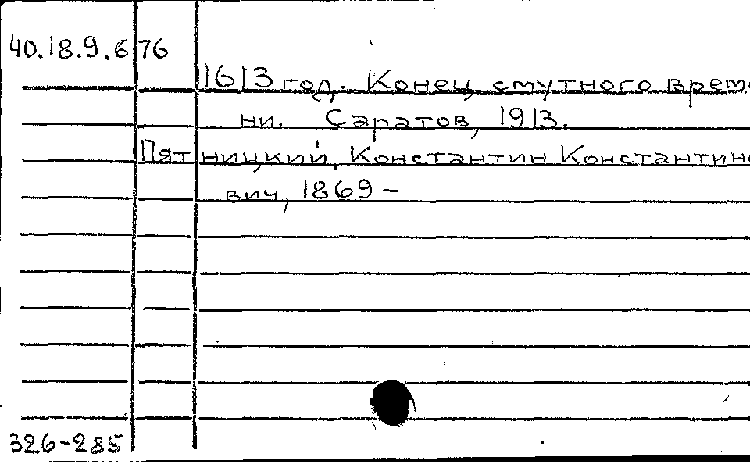 40.18.9.676
1613 год. Конец смутного време
ни. Саратов, 1913.
Пятницкий, Константин Константино
вич, 1869 –
326-285